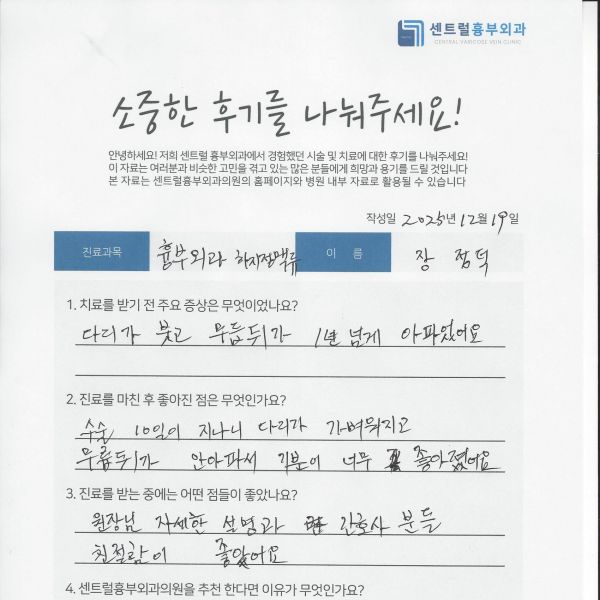 센트럴흉부외과
CENTRAL VARICOSE VEIN CLINIC
소중한 후기를 나눠주세요!
안녕하세요! 저희 센트럴 흉부외과에서 경험했던 시술 및 치료에 대한 후기를 나눠주세요!
이 자료는 여러분과 비슷한 고민을 겪고 있는 많은 분들에게 희망과 용기를 드릴 것입니다
본 자료는 센트럴흉부외과의원의 홈페이지와 병원 내부 자료로 활용될 수 있습니다
작성일 2025년 12월 19일
진료과목 흉부외과 하지정맥류 이 름 장 점덕
1. 치료를 받기 전 주요 증상은 무엇이었나요?
다리가 붓고 무릎뒤가 1년 넘게 아파었어요
2. 진료를 마친 후 좋아진 점은 무엇인가요?
수술 10일이 지나니 다리가 가벼워지고
무릎뒤가 안아파서 기분이 너무 좋아졌어요
3. 진료를 받는 중에는 어떤 점들이 좋았나요?
원장님 자세한 설명과 간호사 분들
친절함이 좋았어요
4. 센트럴흉부외과의원을 추천 한다면 이유가 무엇인가요?